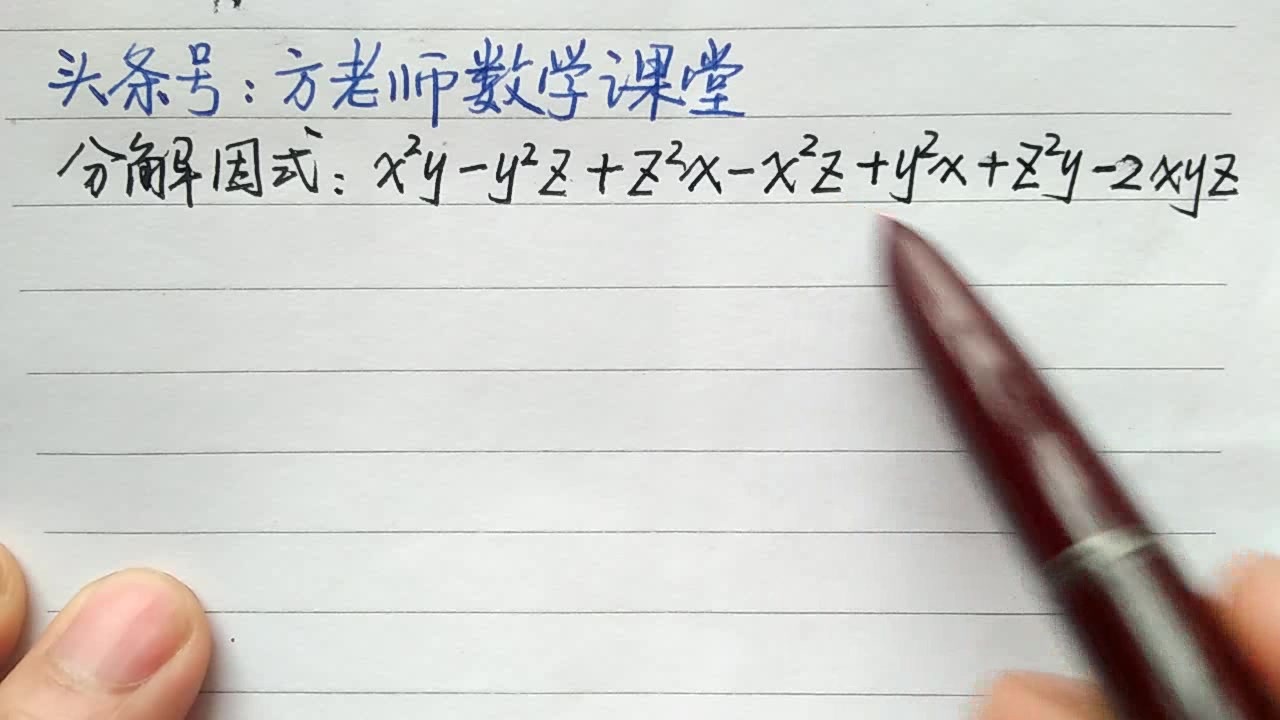 头条号：方老师数学课堂
分解因式：x²y-y²z+z²x-x²z+y²x+z²y-2xyz